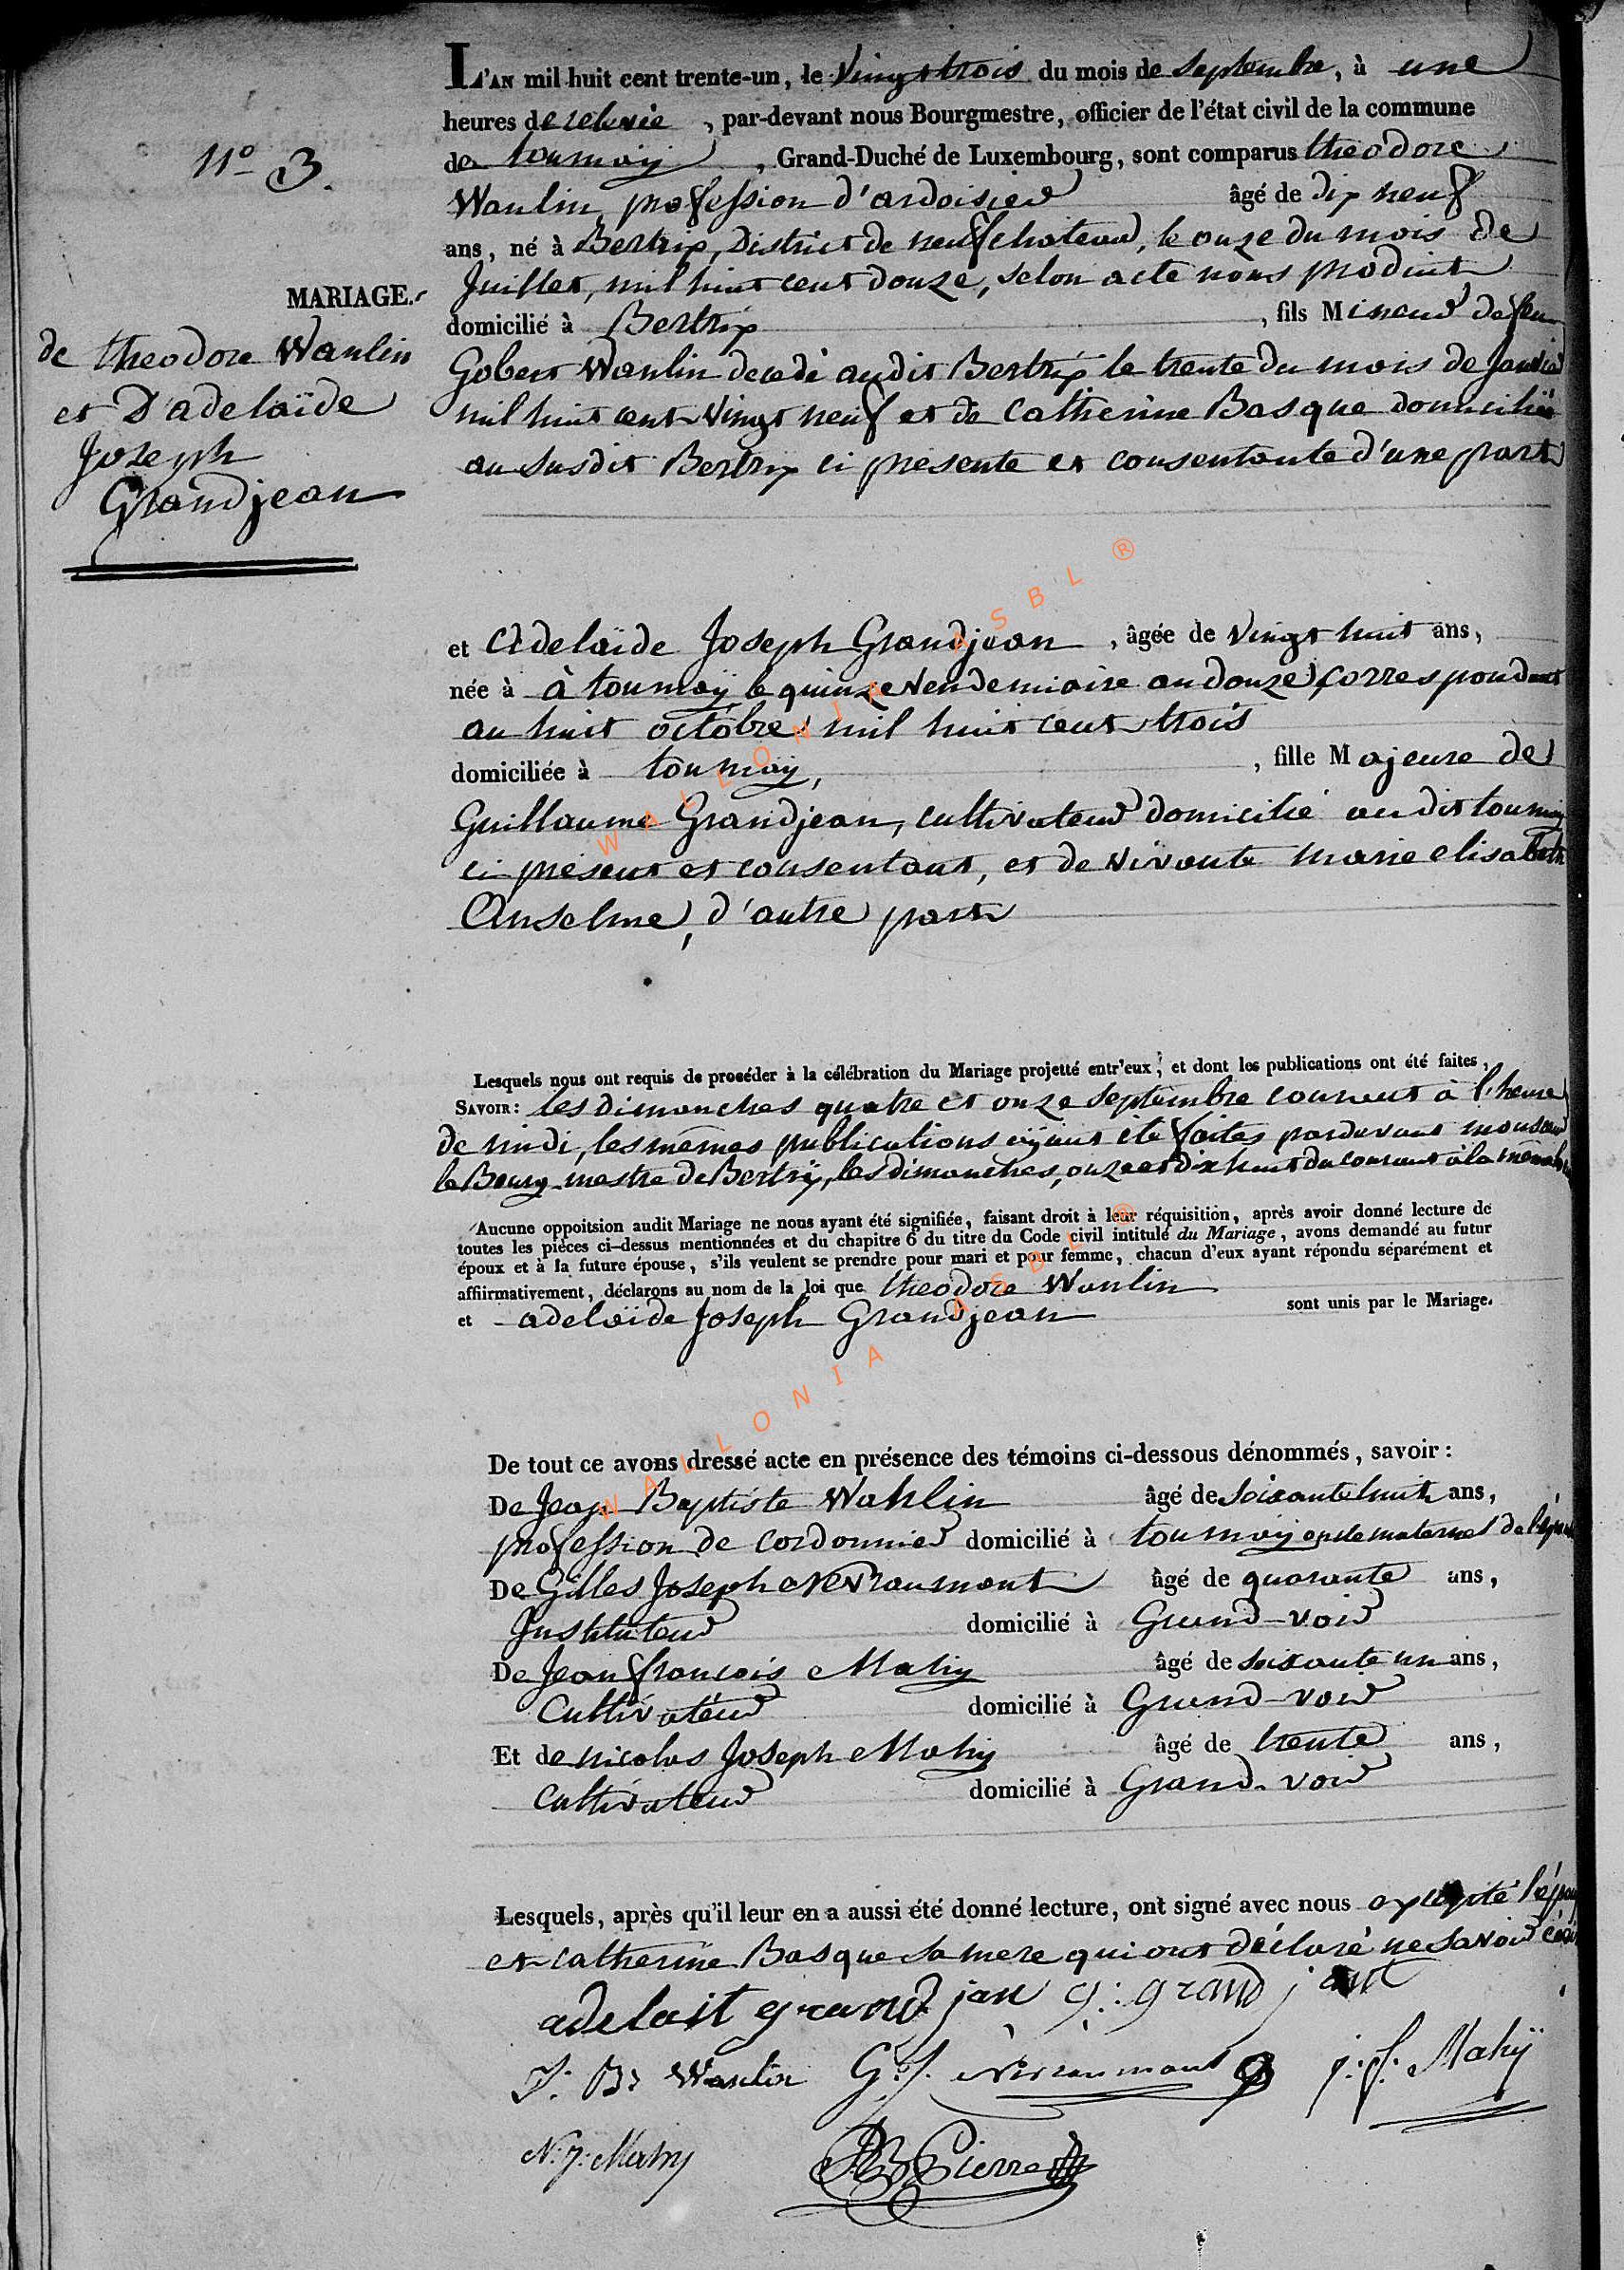 L'AN mil huit cent trente-un, le Vingt trois du mois de Septembre, à une
heures de relevée, par-devant nous Bourgmestre, officier de l'état civil de la commune
de tournay, Grand-Duché de Luxembourg, sont comparus theodore
Wanlin, profession d'ardoisier âgé de dix neuf
ans, né à Bertrix, District de neufchateau, le onze du mois de
Juillet, mil huit cent douze, selon acte nous produit
domicilié à Bertrix, fils Mineur de feu
Gobert Wanlin decedé audit Bertrix le trente du mois de Janvier
mil huit cent vingt neuf et de Catherine Basque domiciliée
au susdit Bertrix ci présente et consentante d'une part
N° 3.
MARIAGE.
de theodore Wanlin
et D'adelaïde
Joseph
Grandjean
et Adelaïde Joseph Grandjean, âgée de vingt huit ans,
née à à tournay, le quinze vendemiaire an douze, correspondant
au huit octobre mil huit cent trois
domiciliée à tournay, fille Majeure de
Guillaume Grandjean, cultivateur domicilié au dit tournay
ci présent et consentant, et de vivante marie elisabeth
Anselme, d'autre part
Lesquels nous ont requis de procéder à la célébration du Mariage projetté entr'eux, et dont les publications ont été faites,
SAVOIR: les dimanches quatre et onze septembre courant à l'heure
de midi, les mêmes publications ayant été faites pardevant monsieur
le Bourg-mestre de Bertrix, les dimanches, onze et dix huit du courant à la même
Aucune oppoitsion audit Mariage ne nous ayant été signifiée, faisant droit à leur réquisition, après avoir donné lecture de
toutes les pièces ci-dessus mentionnées et du chapitre 6 du titre du Code civil intitulé du Mariage, avons demandé au futur
époux et à la future épouse, s'ils veulent se prendre pour mari et pour femme, chacun d'eux ayant répondu séparément et
affiirmativement, déclarons au nom de la loi que theodore Wanlin
et adelaïde Joseph Grandjean sont unis par le Mariage.
De tout ce avons dressé acte en présence des témoins ci-dessous dénommés, savoir:
De Jean Baptiste Wahlin âgé de soixante huit ans,
profession de cordonnier domicilié à tournay oncle maternel de l'époux
De Gilles Joseph Nevraumont âgé de quarante ans,
Instituteur domicilié à Grand-voir
De Jean françois Mahy âgé de soixante un ans,
Cultivateur domicilié à Grand-voir
Et de nicolas Joseph Mahy âgé de trente ans,
Cultivateur domicilié à Grand-voir
Lesquels, après qu'il leur en a aussi été donné lecture, ont signé avec nous excepté l'époux
et catherine Basque sa mere qui ont déclaré ne savoir écrire
adelait grand jan g: grand jant
J: Bt Wanlin G: J. Nevraumont j: f: Mahÿ
N: J: Mahy JB Pierre
WALLONIA ASBL ®
WALLONIA ASBL ®